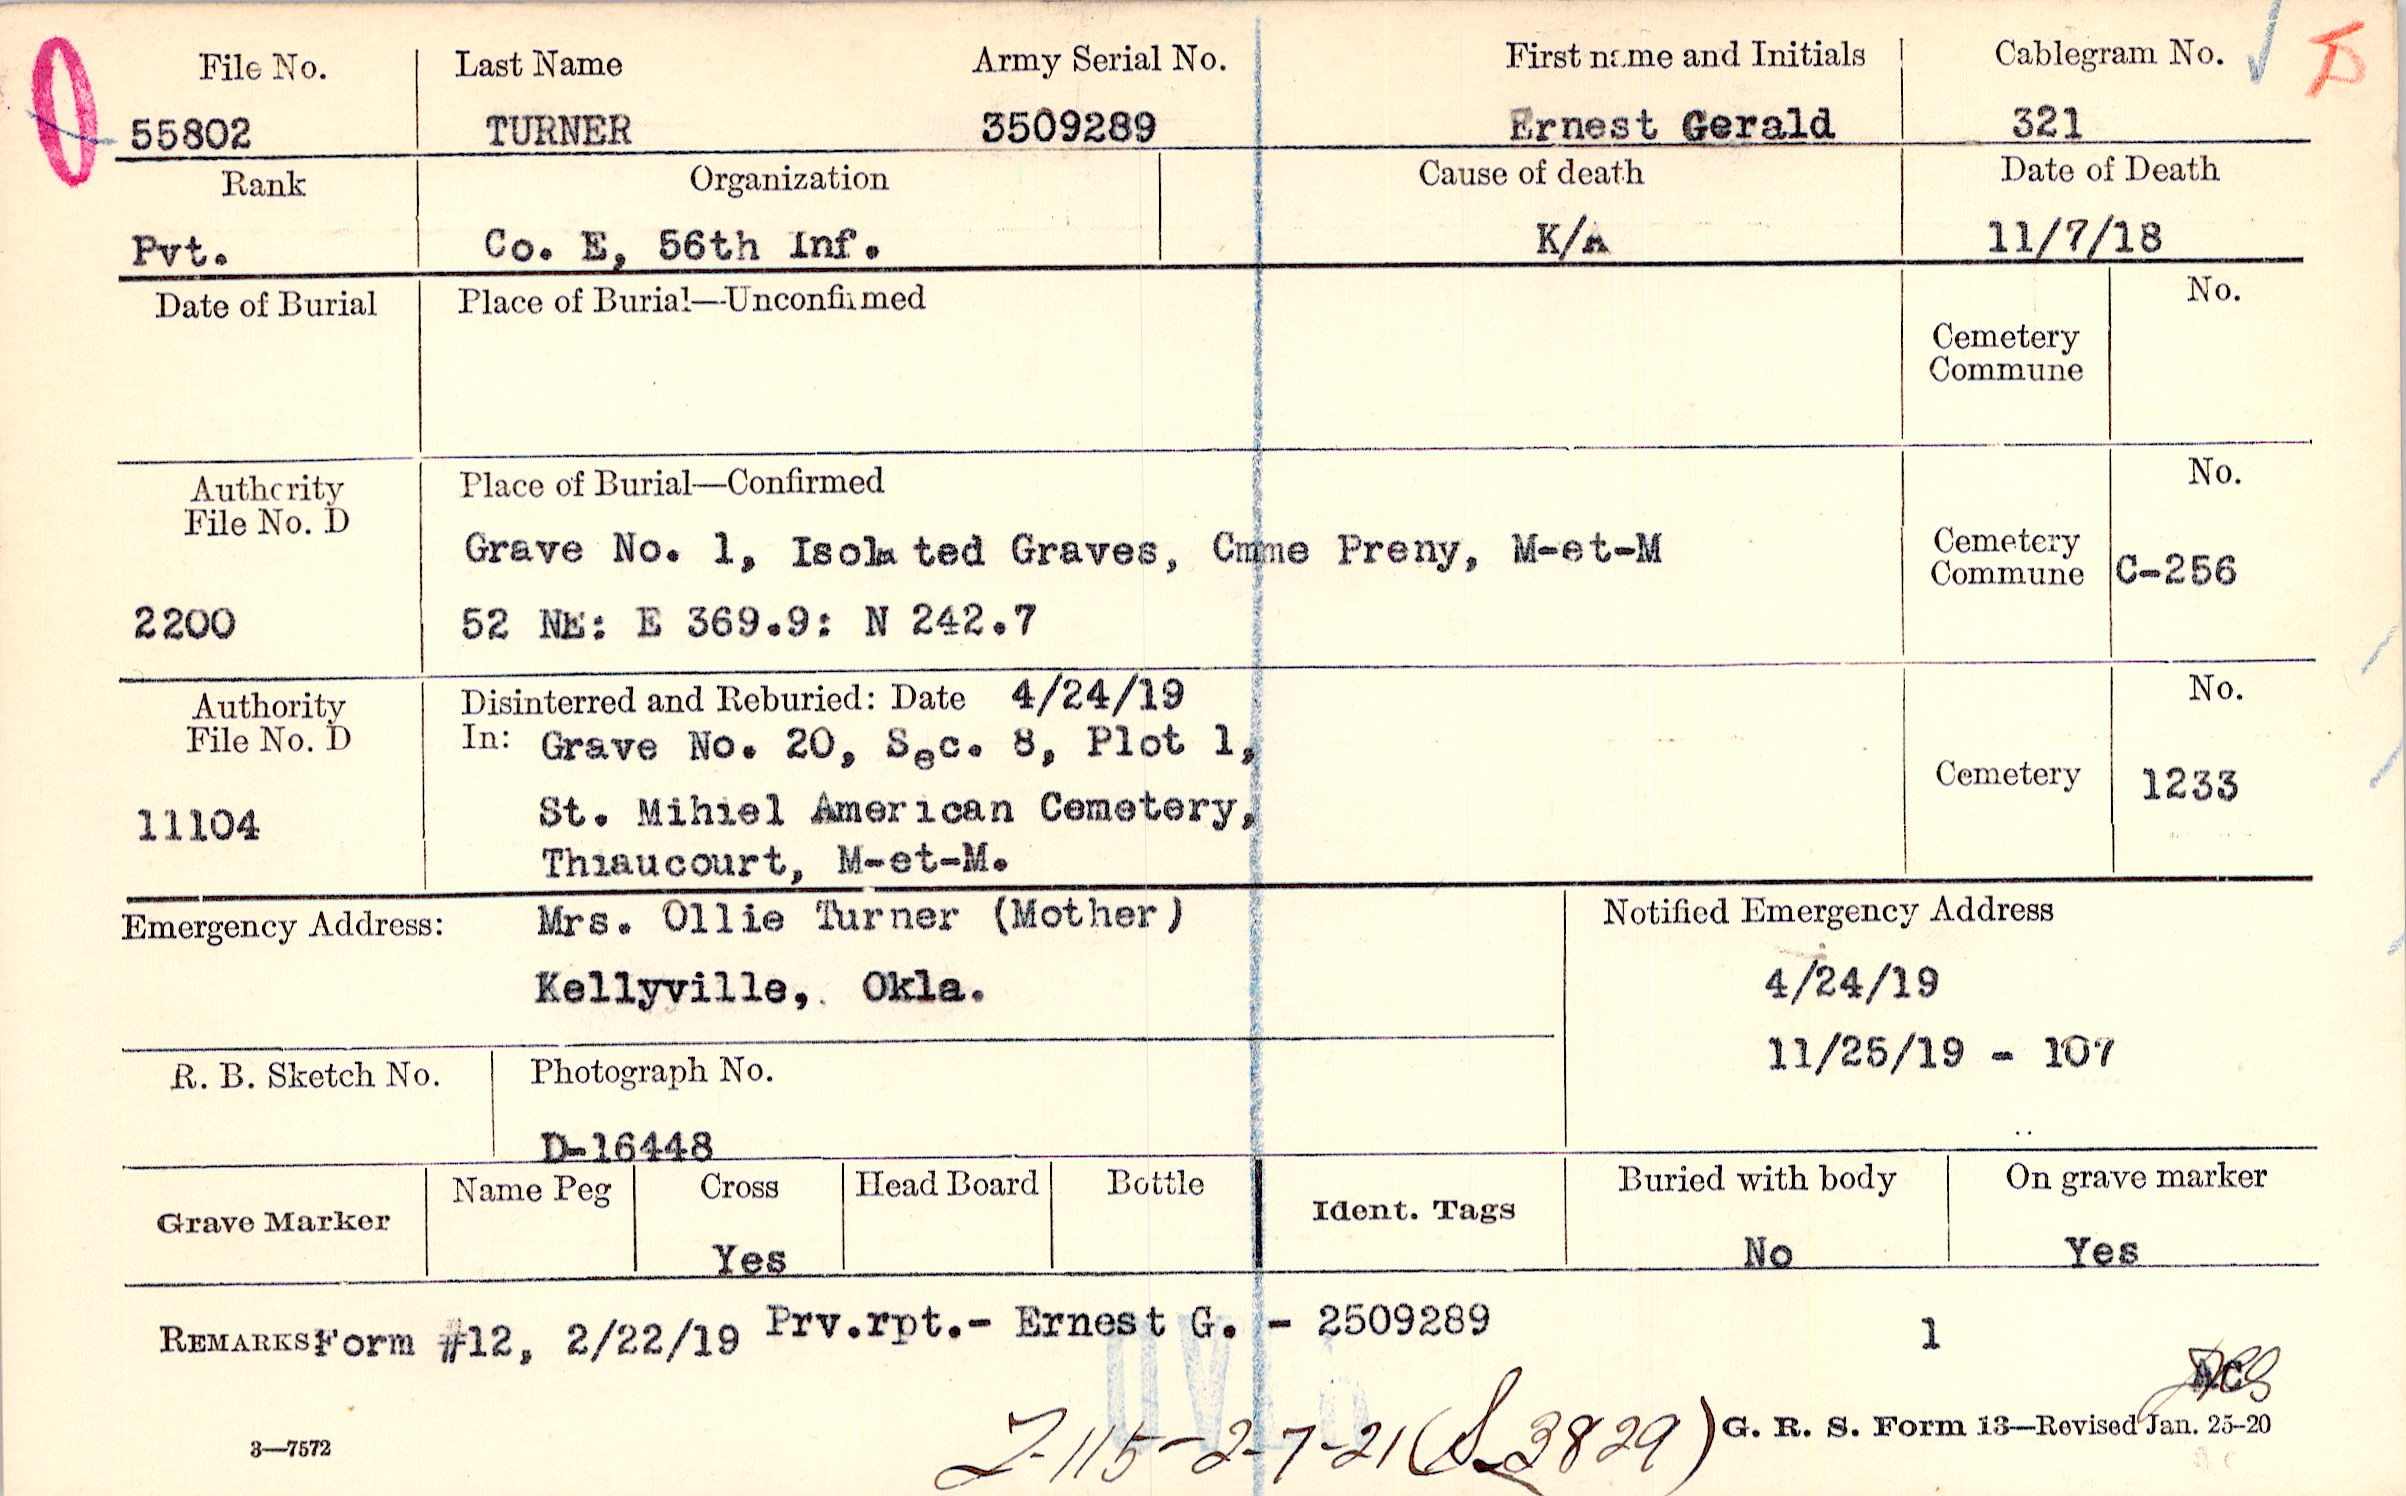 File No. Last Name Army Serial No. First name and Initials Cablegram No.
55802 TURNER 3509289 Ernest Gerald 321
Rank Organization Cause of death Date of Death
Pvt. Co. E, 56th Inf. K/A 11/7/18
Date of Burial Place of Burial—Unconfirmed No.
Cemetery
Commune
Authority Place of Burial—Confirmed No.
File No. D
Grave No. 1, Isolated Graves, Cmne Preny, M-et-M Cemetery
Commune C-256
2200 52 NE: E 369.9: N 242.7
Authority Disinterred and Reburied: Date 4/24/19 No.
File No. D In: Grave No. 20, Sec. 8, Plot 1,
Cemetery 1233
11104 St. Mihiel American Cemetery,
Thiaucourt, M-et-M.
Emergency Address: Mrs. Ollie Turner (Mother) Notified Emergency Address
Kellyville, Okla. 4/24/19
11/25/19 - 107
R. B. Sketch No. Photograph No.
D-16448
Grave Marker Name Peg Cross Head Board Bottle Ident. Tags Buried with body On grave marker
Yes No Yes
REMARKS: Form #12, 2/22/19 Prv.rpt.- Ernest G. - 2509289 1
AC
3—7572 G. R. S. Form 13—Revised Jan. 25-20